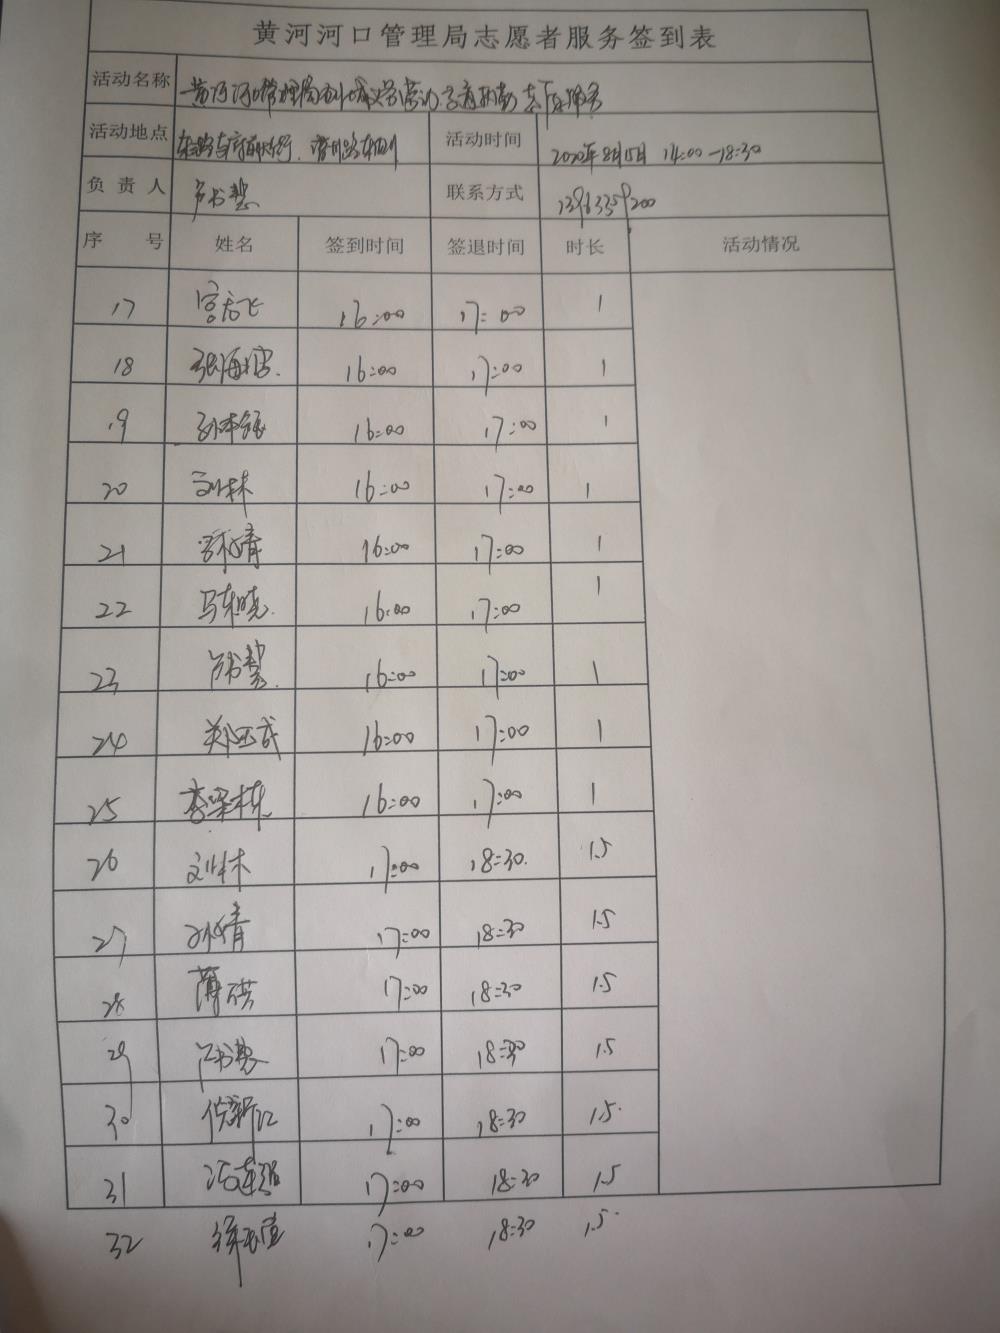 黄河河口管理局志愿者服务签到表
活动名称 黄河河口管理局
活动地点 活动时间 2020年8月15日 14:00-18:30
负责人 卢书慧 联系方式 13963359200
序号 姓名 签到时间 签退时间 时长 活动情况
17 宫志飞 16:00 17:00 1
18 张海滨 16:00 17:00 1
19 16:00 17:00 1
20 刘林 16:00 17:00 1
21 16:00 17:00 1
22 马东晓 16:00 17:00 1
23 卢书慧 16:00 17:00 1
24 16:00 17:00 1
25 李梁栋 16:00 17:00 1
26 刘林 17:00 18:30 1.5
27 17:00 18:30 1.5
28 17:00 18:30 1.5
29 卢书慧 17:00 18:30 1.5
30 17:00 18:30 1.5
31 17:00 18:30 1.5
32 17:00 18:30 1.5